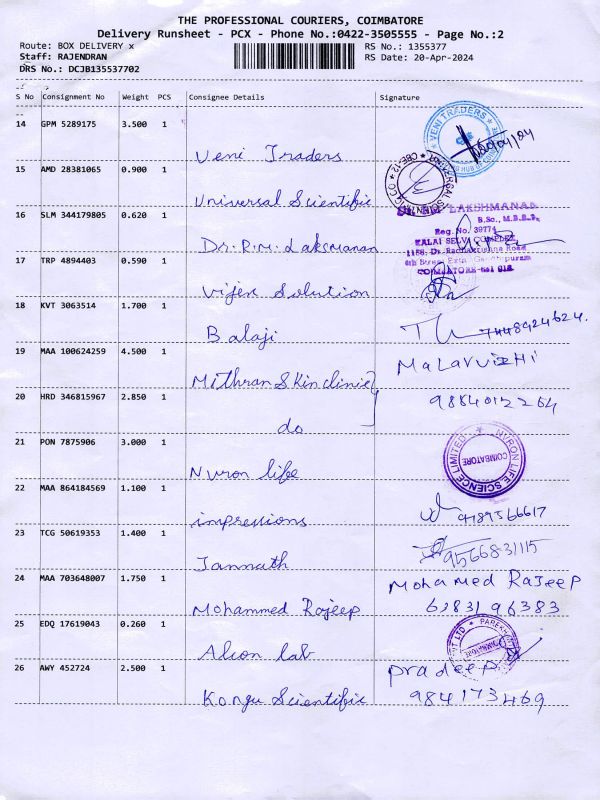 THE PROFESSIONAL COURIERS, COIMBATORE
Delivery Runsheet - PCX - Phone No.:0422-3505555 - Page No.:2
Route: BOX DELIVERY x
RS No.: 1355377
Staff: RAJENDRAN
RS Date: 20-Apr-2024
DRS No.: DCJB135537702
S No Consignment No Weight PCS Consignee Details Signature
14 GPM 5289175 3.500 1
Veni Traders
VENI TRADERS
15 AMD 28381065 0.900 1
Universal Scientific
16 SLM 344179805 0.620 1
Dr. R.M. Laksmanan
LAKSHMANAN
B.Sc., M.B.B.S.,
Reg. No. 39774
KALAI SELVI COMPLEX
COIMBATORE-641 012
17 TRP 4894403 0.590 1
Vijen Solution
18 KVT 3063514 1.700 1
Balaji
7448924624.
19 MAA 100624259 4.500 1
Mithran Skin clinic
MALAVIZHI
20 HRD 346815967 2.850 1
do
9884012264
21 PON 7875906 3.000 1
Nuron life
NVRON LIFE SCIENCE LIMITED
COIMBATORE
22 MAA 864184569 1.100 1
impressions
9789566617
23 TCG 50619353 1.400 1
Jannath
9566831115
24 MAA 703648007 1.750 1
Mohammed Rajeep
Mohamed Rajeep
6283196383
25 EDQ 17619043 0.260 1
Alion lab
26 AWY 452724 2.500 1
Kongu Scientific
Pradeep
9841173469